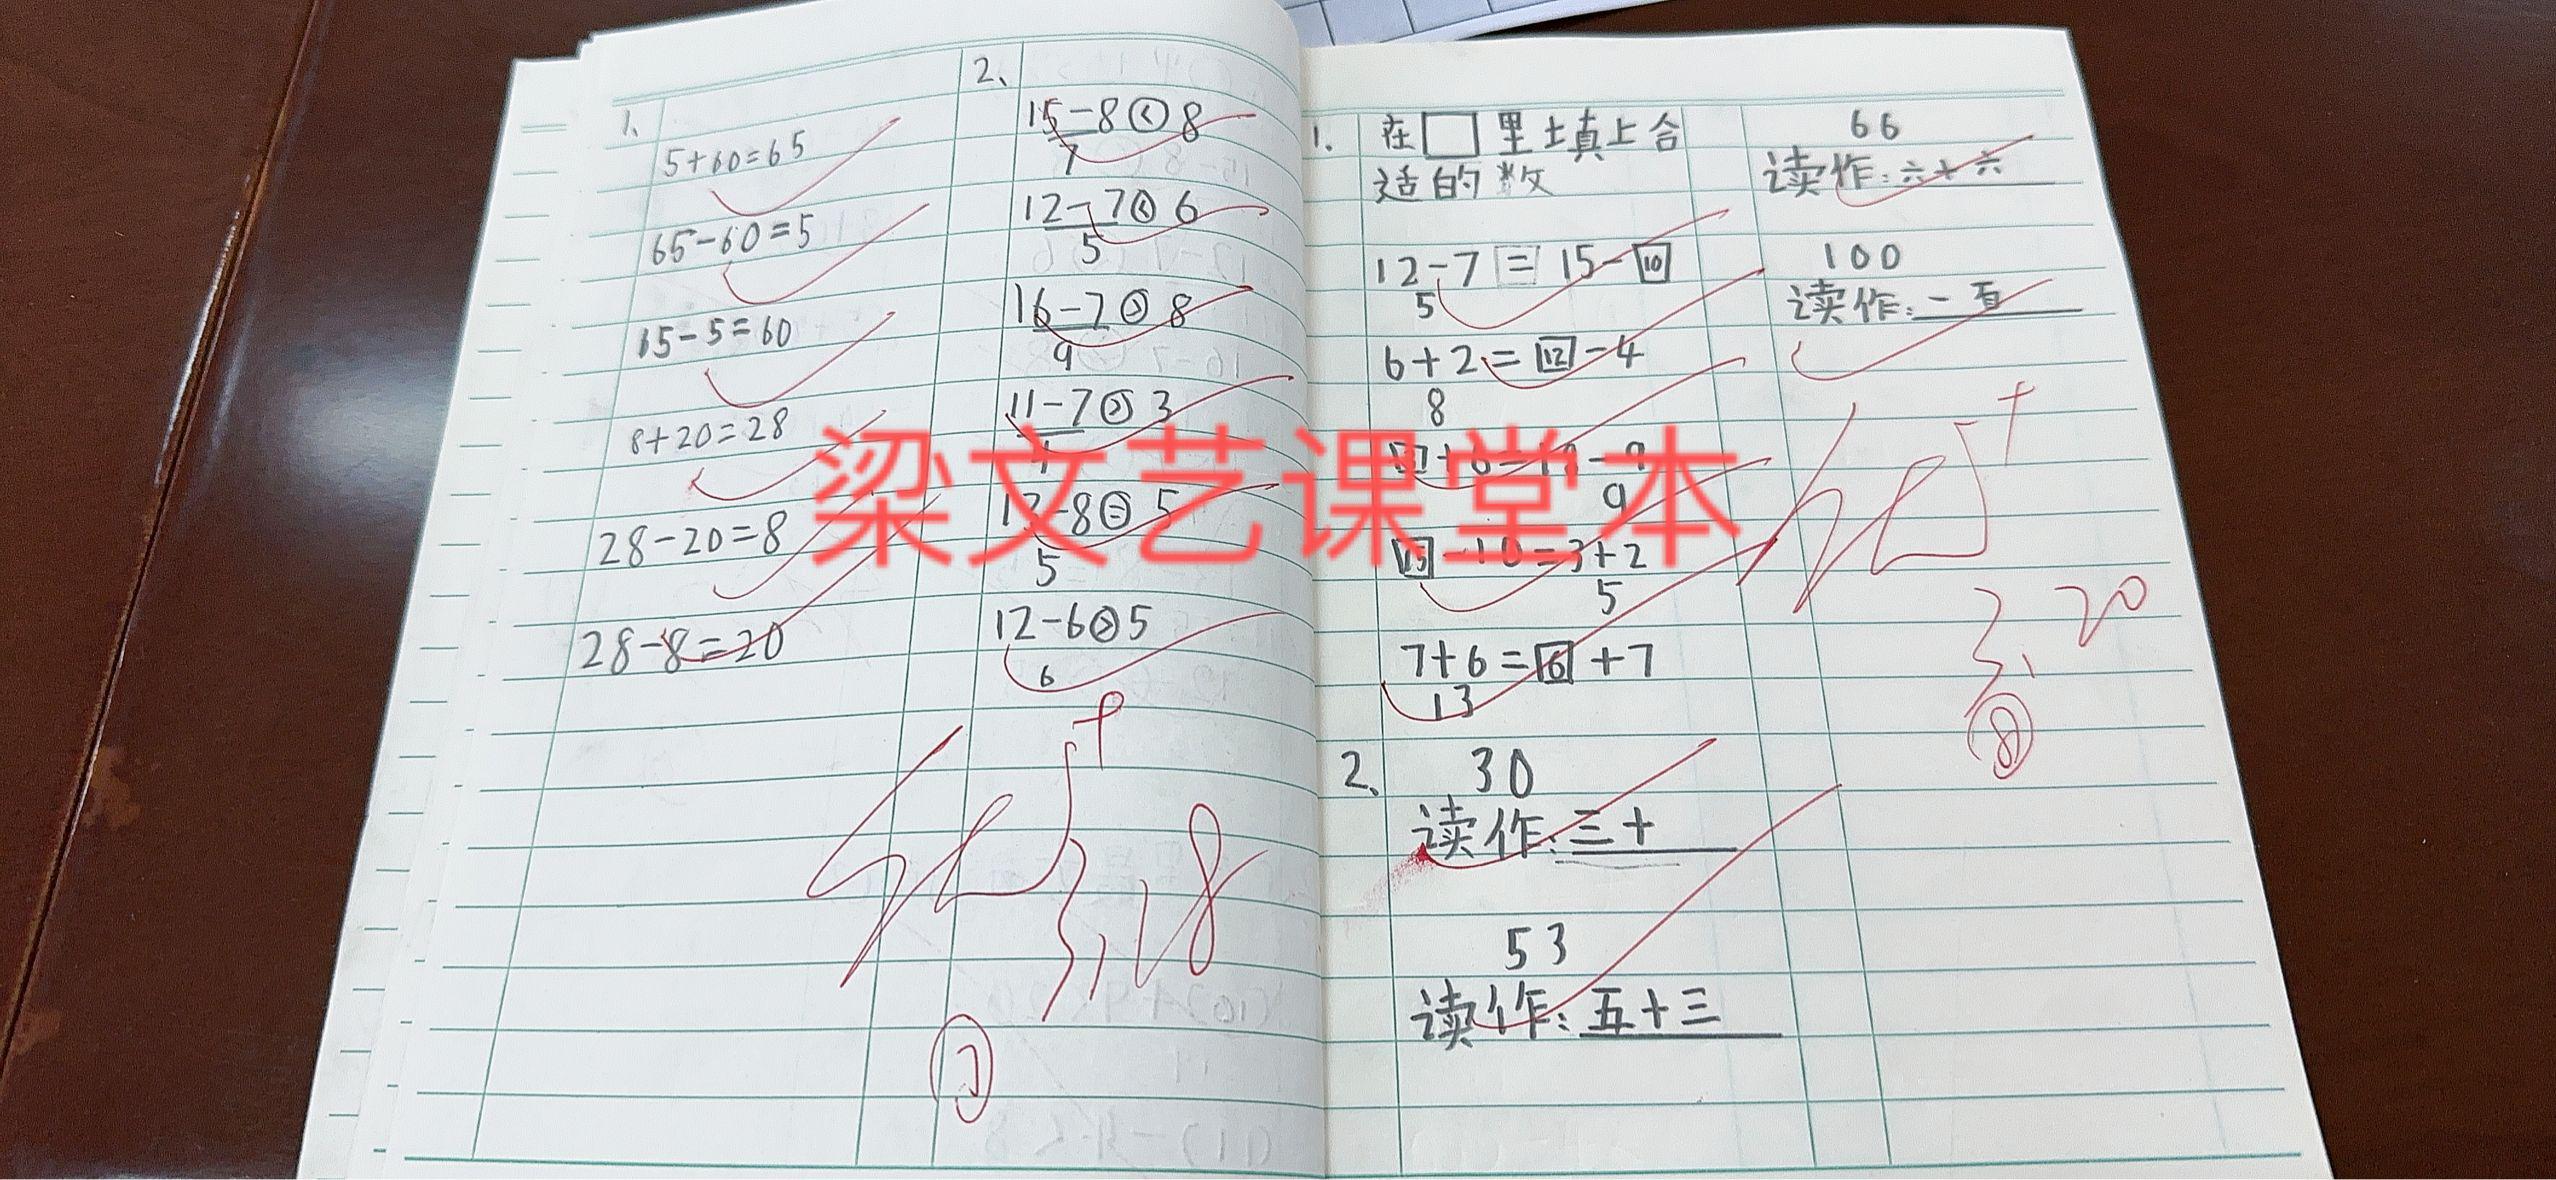 1、
5+60=65
65-60=5
65-5=60
8+20=28
28-20=8
28-8=20
2、
15-8<8
7
12-7<6
5
16-7>8
9
11-7>3
4
13-8=5
5
12-6>5
6
优+
3,18
1. 在□里填上合
适的数
12-7=15-10
5
6+2=12-4
8
3+6=19-9
9
15-10=3+2
5
7+6=6+7
13
2、30
读作:三十
53
读作:五十三
66
读作:六十六
100
读作:一百
优+
3,20
8
梁文艺课堂本